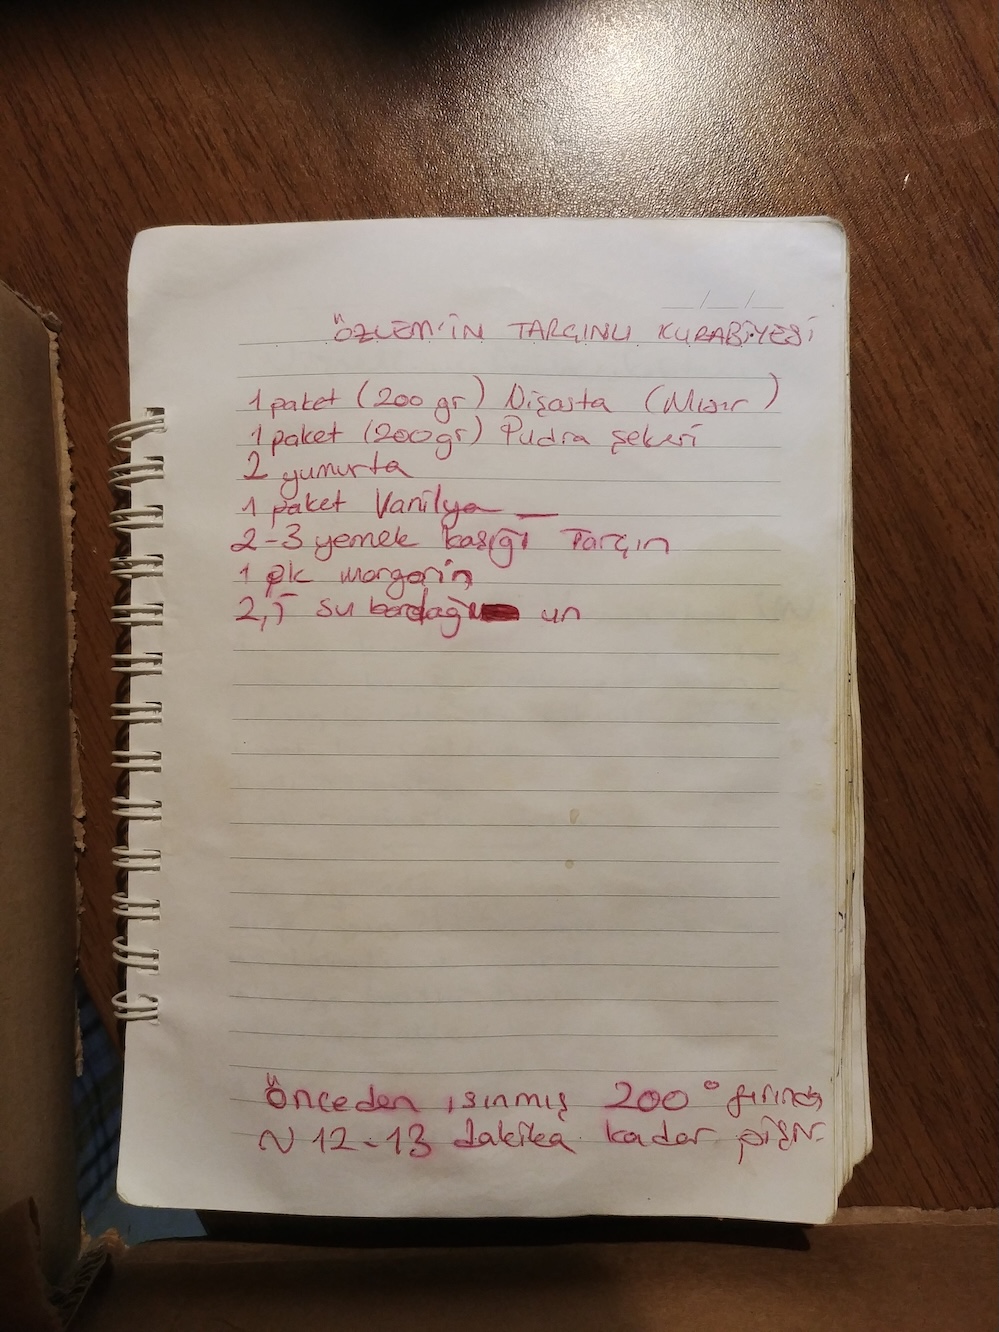 ÖZLEM'İN TARÇINLI KURABİYESİ
1 paket (200 gr) Nişasta (Mısır)
1 paket (200gr) Pudra şekeri
2 yumurta
1 paket Vanilya
2-3 yemek kaşığı Tarçın
1 pk margarin
2,5 su bardağı un
Önceden ısınmış 200° fırında
~ 12-13 dakika kadar pişir.